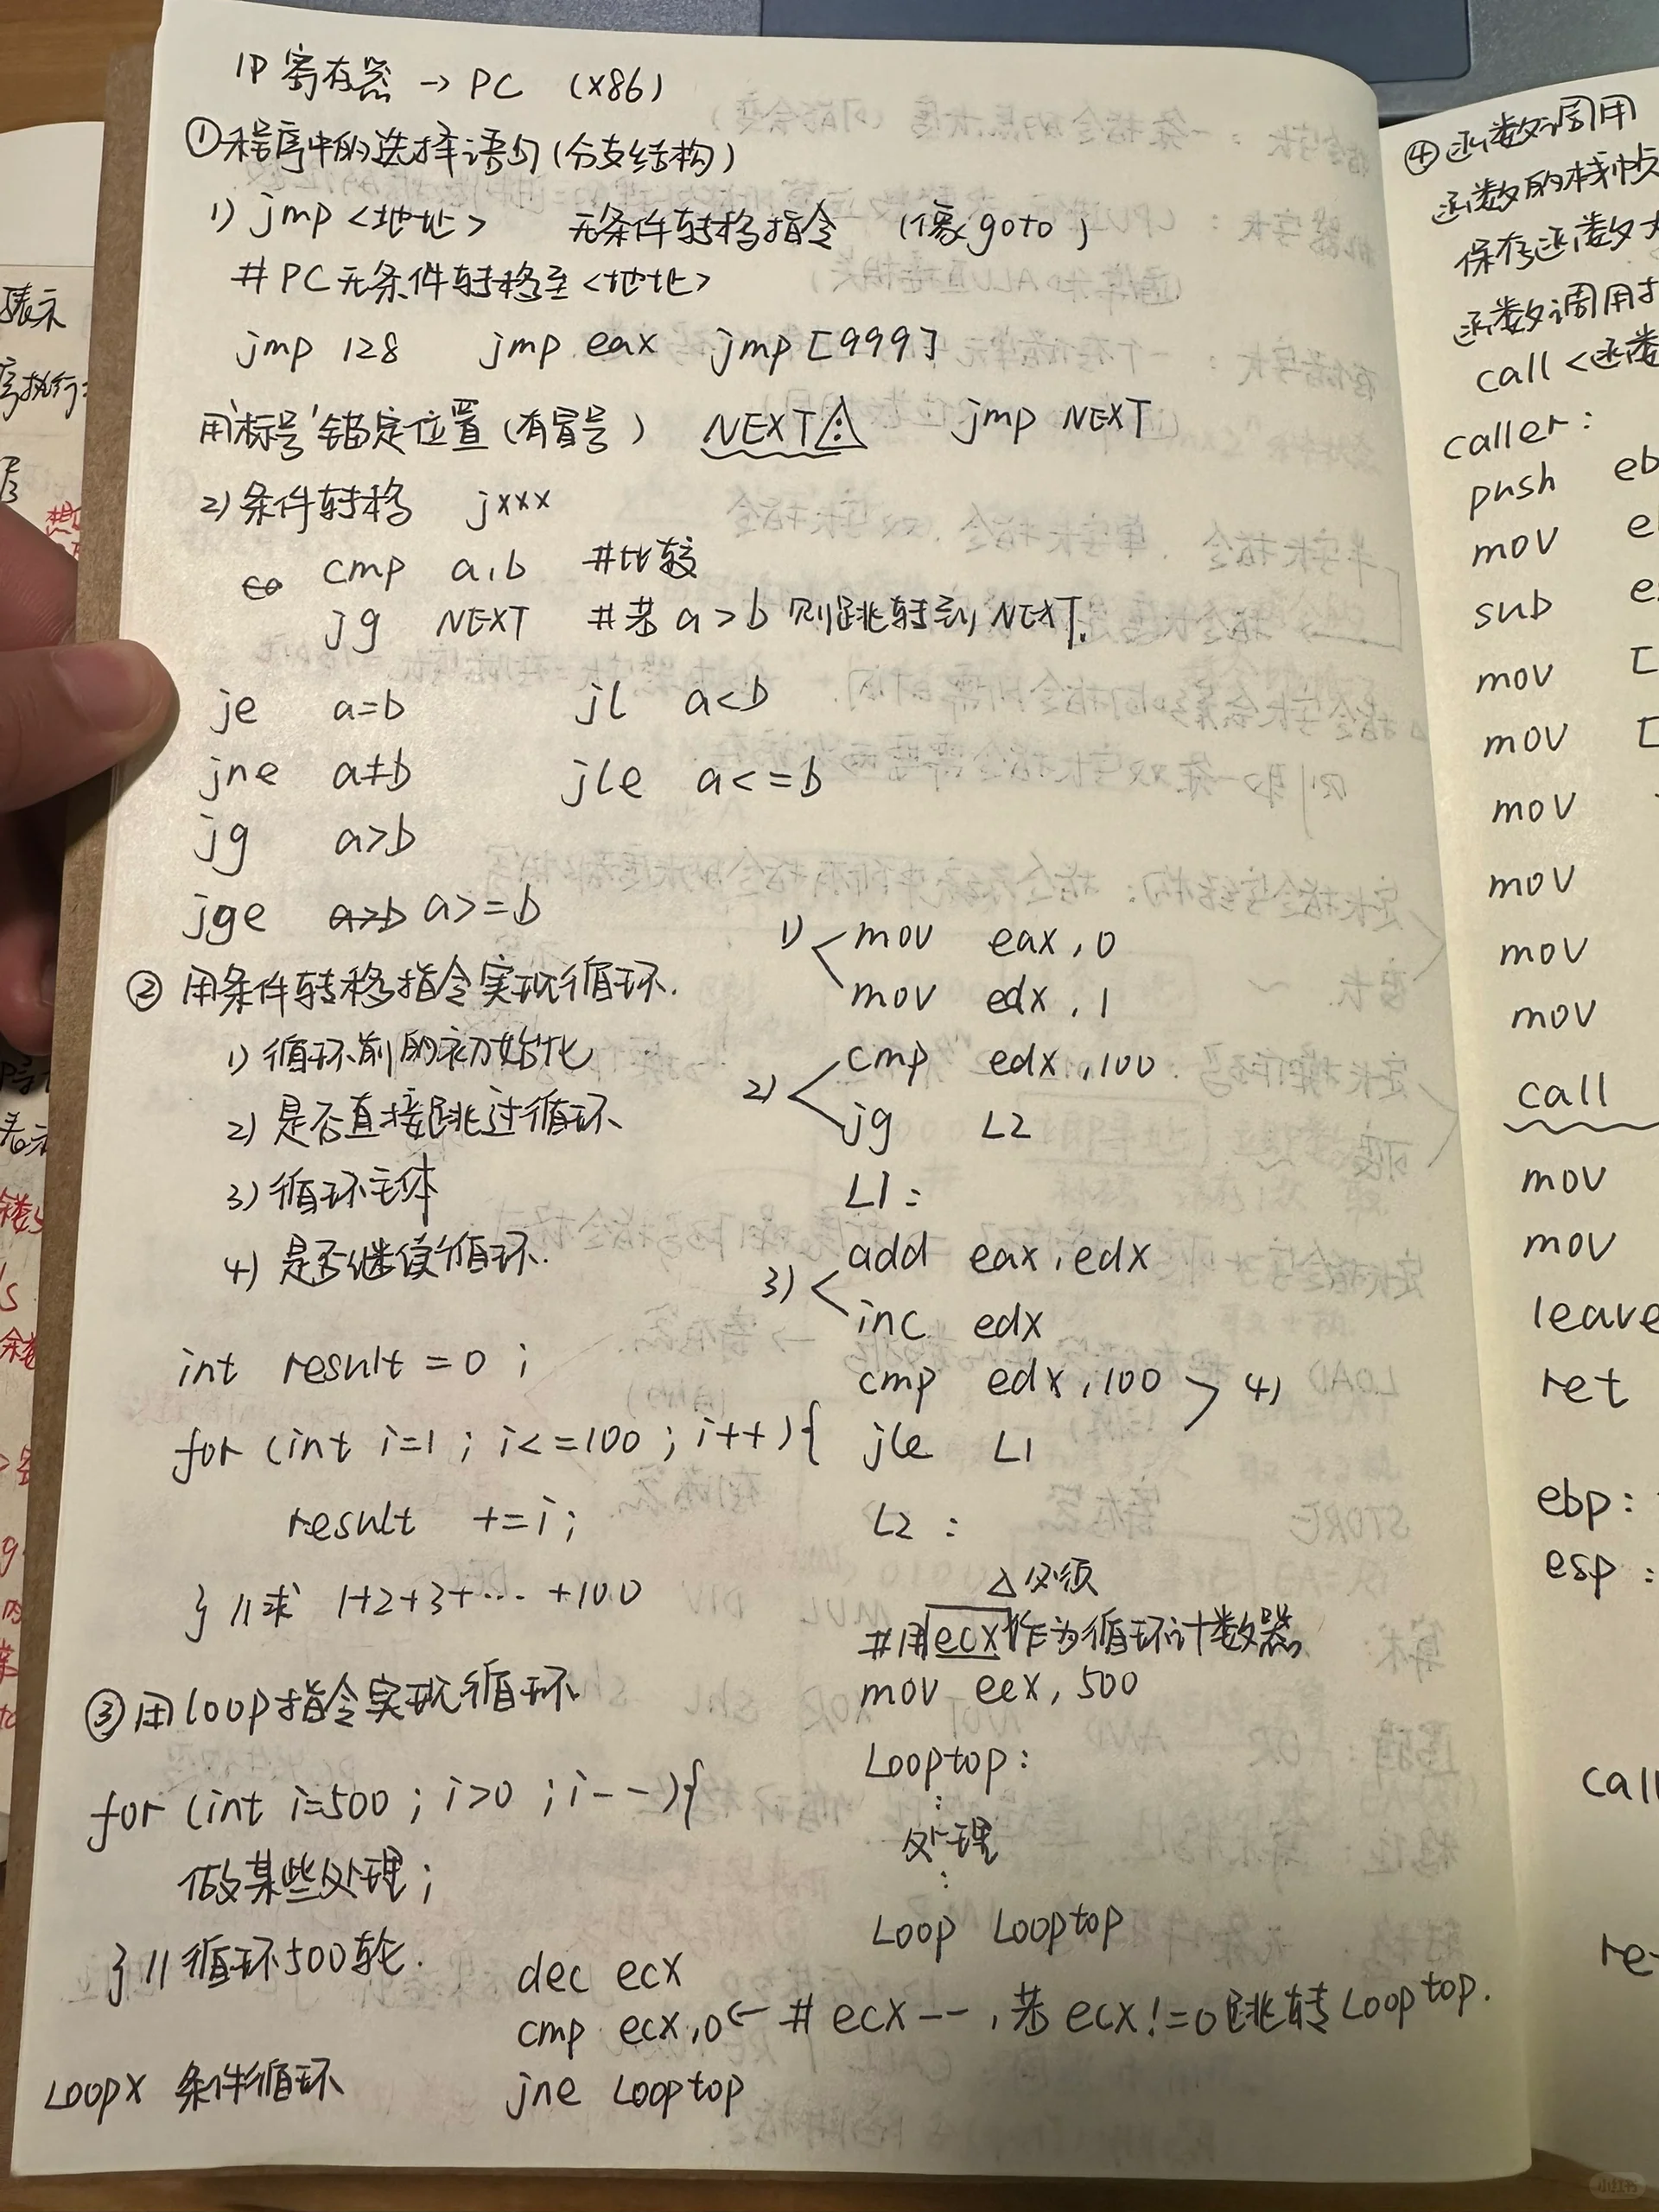 IP 寄存器 → PC (x86)
①程序中的选择语句(分支结构)
1) jmp <地址> 无条件转移指令 (像goto)
# PC无条件转移至<地址>
jmp 128 jmp eax jmp [999]
用'标号'锚定位置(有冒号) NEXT: jmp NEXT
2) 条件转移 jxxx
cmp a,b #比较
jg NEXT #若 a>b 则跳转到 NEXT.
je a=b jl a<b
jne a≠b jle a<=b
jg a>b
jge a>b a>=b
② 用条件转移指令实现循环.
1) 循环前的初始化
2) 是否直接跳过循环
3) 循环主体
4) 是否继续循环.
int result = 0 ;
for (int i=1 ; i<=100 ; i++){
result +=i ;
} //求 1+2+3+… +100
1) mov eax , 0
mov edx , 1
2) cmp edx ,100
jg L2
L1 :
3) add eax , edx
inc edx
cmp edx ,100 4)
jle L1
L2 :
△必须
#用ecx作为循环计数器
③用loop指令实现循环
for (int i=500 ; i>0 ; i--){
做某些处理 ;
} //循环500轮.
mov ecx , 500
Looptop :
⋮
处理
⋮
Loop Looptop
dec ecx
cmp ecx,0 ← # ecx-- , 若 ecx!=0 跳转 Looptop.
jne Looptop
Loopx 条件循环
④函数调用
函数的栈帧
保存函数
函数调用
call <函数
caller :
push
mov
sub
mov [
mov [
mov
mov
mov
mov
call
mov
mov
leave
ret
ebp :
esp :
call
表示